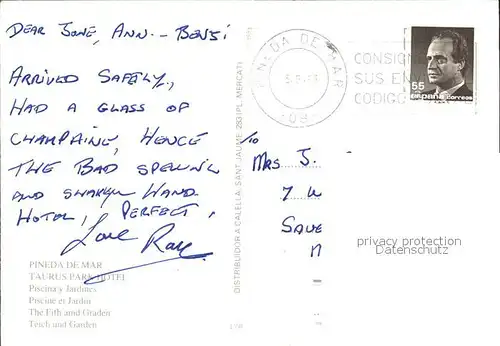 DEAR JONE, ANN. - BENJI
ARRIVED SAFELY,
HAD A GLASS OF
CHAMPAINE, HENCE
THE BAD SPELLING
AND SHAKY HAND
HOTEL, PERFECT,
Love Ray.
PINEDA DE MAR
TAURUS PARK HOTEL
Piscina y Jardines
Piscine et Jardin
The Fith and Graden
Teich und Garden
DISTRIBUIDOR A CALELLA, SANT JAUME, 283 (PL. MERCAT)
PINEDA DE MAR
CONSIGNE
SUS EN
CODIGO
55
ESPAÑA correos
c/o
MRS J.
7 W
SAVE
privacy protection
Datenschutz